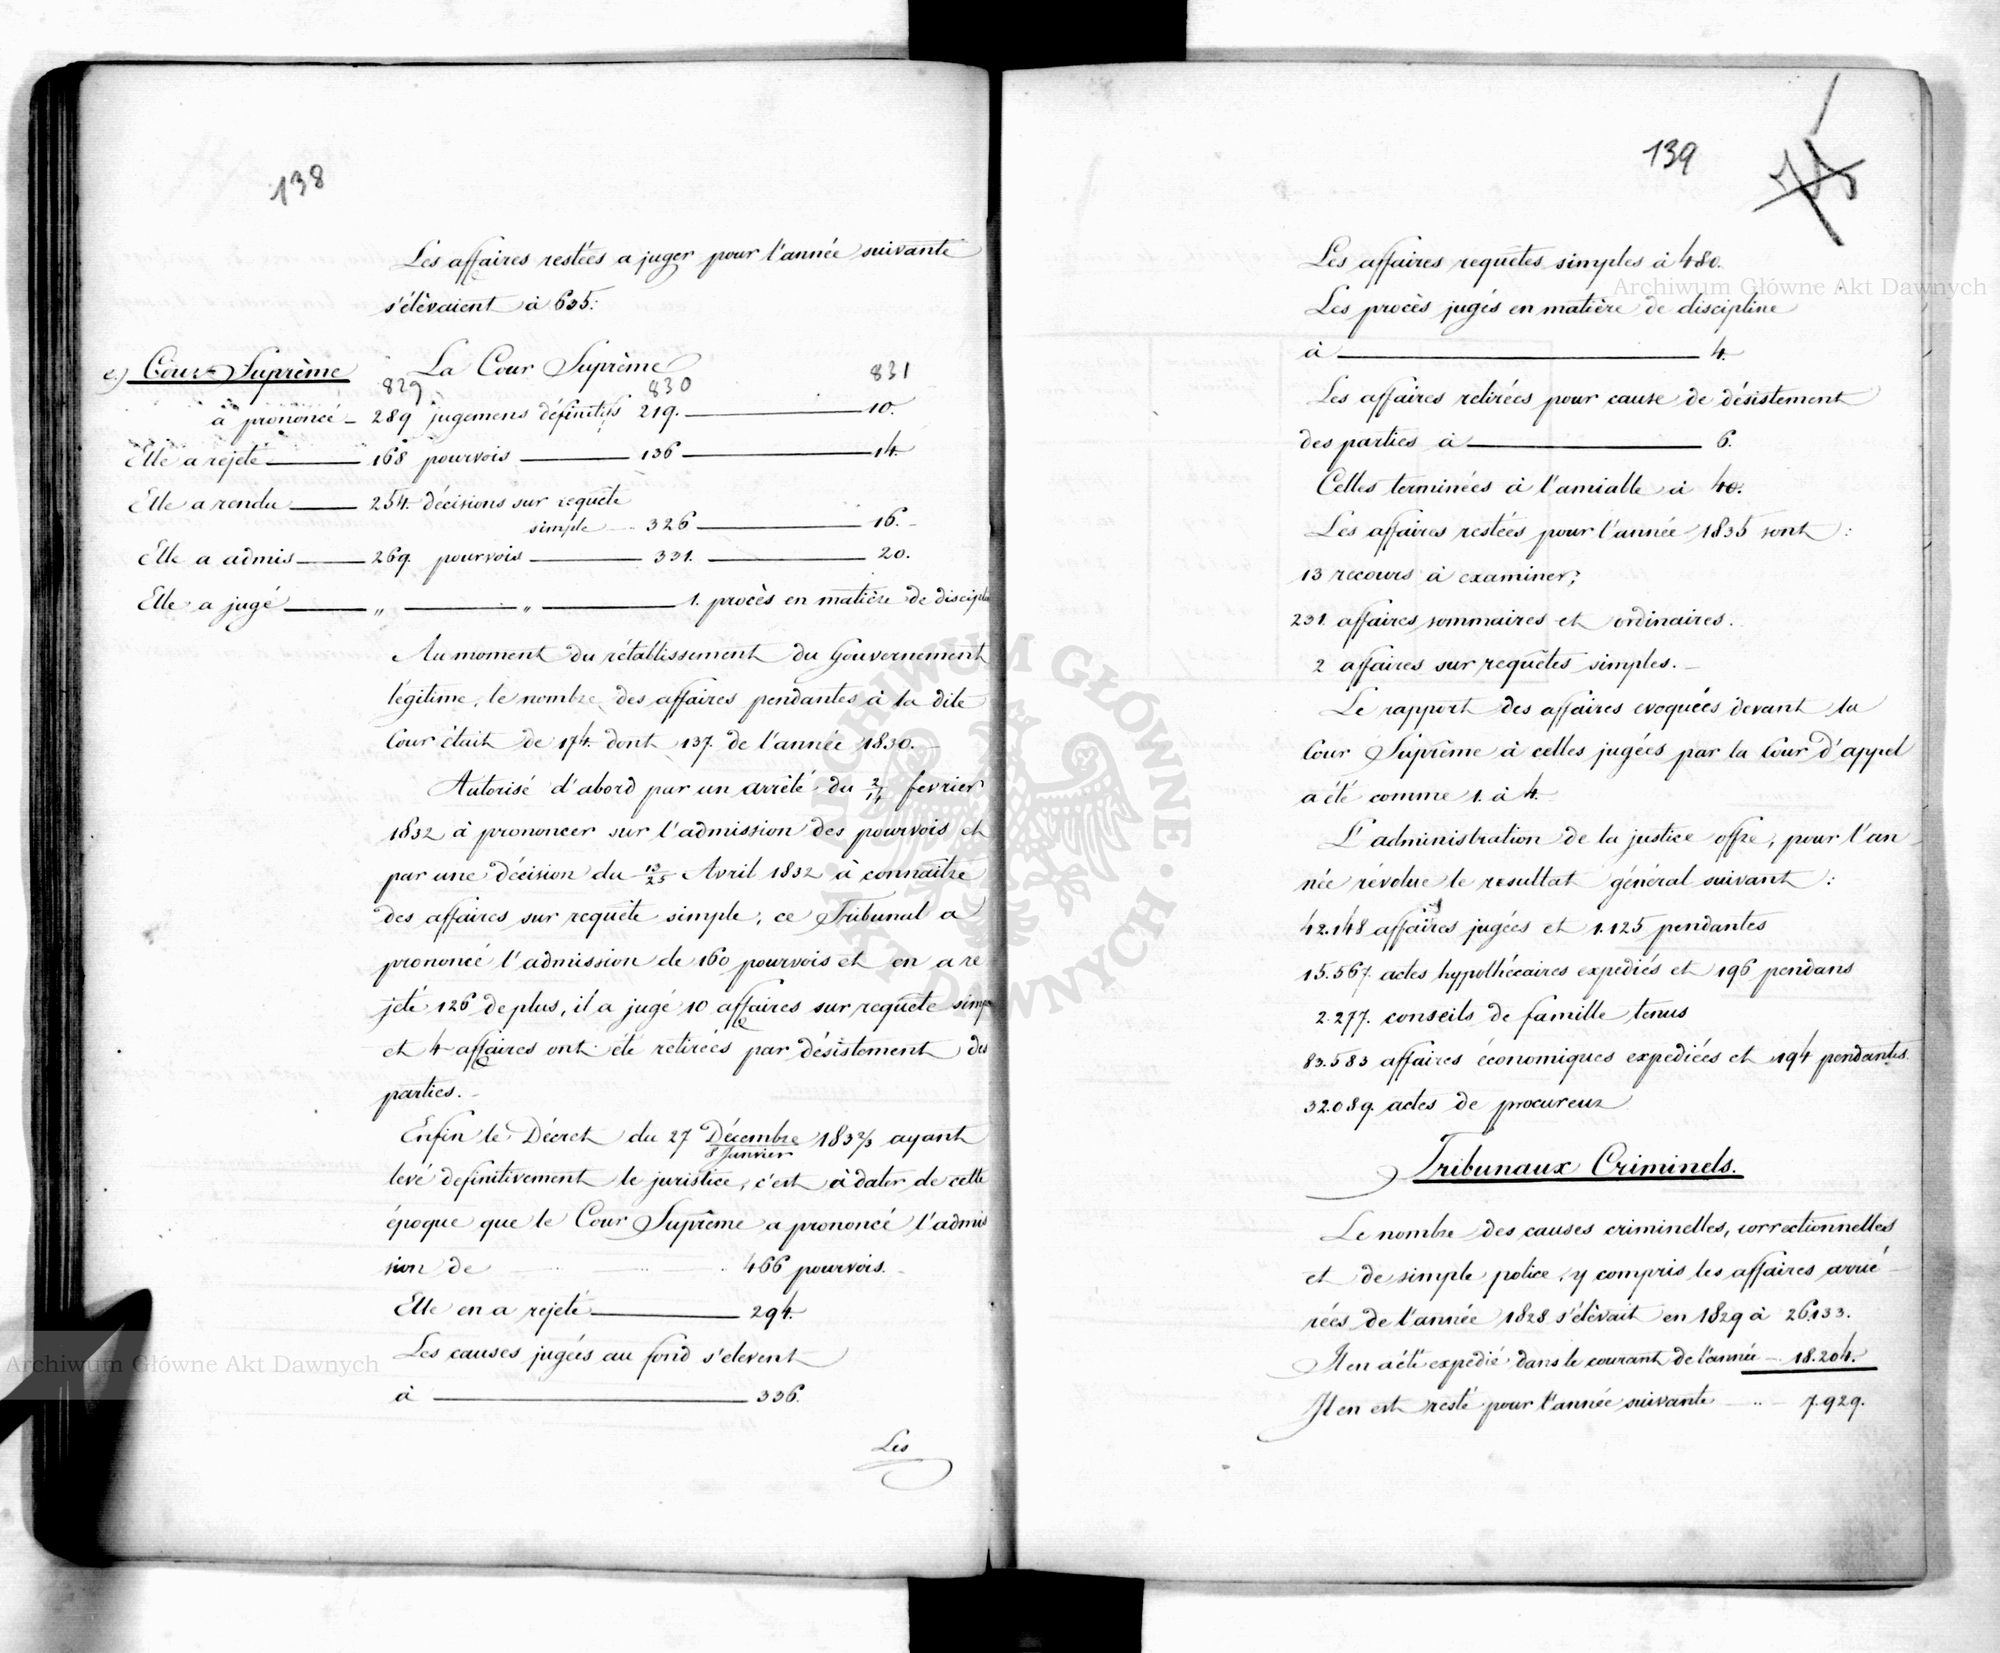 138
Les affaires restées a juger pour l'année suivante
s'élèvaient à 635:
c.) Cour Suprème La Cour Suprème
829 830 831
à prononcé - 289 jugemens définitifs 219. 10.
Elle a rejeté 168 pourvois 136 14.
Elle a rendu 254. décisions sur requête
simple 326 16.
Elle a admis 269. pourvois 331. 20.
Elle a jugé „ „ 1. procès en matière de discipl
Au moment du rétablissement du Gouvernement
légitime, le nombre des affaires pendantes à la dite
Cour était de 174. dont 137. de l'année 1830.
Autorisé d'abord par un arrêté du 2/14 fevrier
1832 à prononcer sur l'admission des pourvois et
par une décision du 13/25 Avril 1832 à connaître
des affaires sur requête simple, ce Tribunal a
prononcé l'admission de 160 pourvois et en a re
jeté 126 de plus, il a jugé 10 affaires sur requête simp
et 4 affaires ont été retirées par désistement des
parties.
Enfin le Décret du 27 Décembre 1832/3 ayant
8 Janvier
levé definitivement le juristice, c'est à dater de cette
époque que le Cour Suprême a prononcé l'admis
sion de 466 pourvois.
Elle en a rejeté 294.
Les causes jugées au fond s'elevent
à 336.
Les
139
75
Les affaires requêtes simples à 480.
Les procès jugés en matière de discipline
à 4.
Les affaires retirées pour cause de désistement
des parties à 6.
Celles terminées à l'amiable à 40.
Les affaires restées pour l'année 1835 sont :
13 recours à examiner;
231. affaires sommaires et ordinaires.
2 affaires sur requêtes simples.
Le rapport des affaires evoquées devant la
Cour Suprème à celles jugées par la Cour d'appel
a été comme 1. à 4.
L'administration de la justice offre, pour l'an
née révolue le resultat général suivant :
42.148 affaires jugées et 1.125 pendantes
15.567. actes hypothécaires expediés et 196 pendans
2.277. conseils de famille tenus
83.583 affaires économiques expediées et 194 pendantes.
32.089. actes de procureur
Tribunaux Criminels.
Le nombre des causes criminelles, correctionnelles
et de simple police, y compris les affaires arrié
rées de l'année 1828 s'élèvait en 1829 à 26.133.
Il en a été expedié dans le courant de l'année - 18.204.
Il en est resté pour l'année suivante 7.929.
Archiwum Główne Akt Dawnych
Archiwum Główne Akt Dawnych
ARCHIWUM GŁÓWNE AKT DAWNYCH